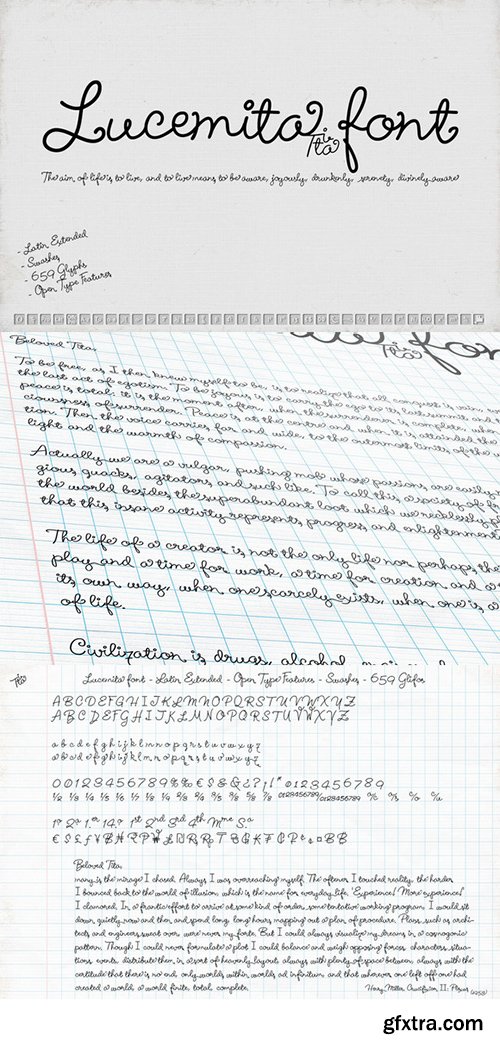 Lucemita font
Tita
The aim of life is to live, and to live means to be aware, joyously, drunkenly, serenely, divinely aware
- Latin Extended
- Swashes
- 659 Glyphs
- Open Type Features
Beloved Tita,
To be free, as I then knew myself to be, is to realize that all conquest is vain, even
the last act of egotism. To be joyous is to carry the ego to its last summit and
peace is total: it is the moment after, when the surrender is complete, when
ciousness of surrender. Peace is at the centre and when it is attained the
tion. Then the voice carries far and wide, to the outermost limits of the
light and the warmth of compassion.
Actually we are a vulgar, pushing mob whose passions are easily
gious quacks, agitators and such like. To call this a society of
the world besides the superabundant loot which we recklessly
that this insane activity represents progress and enlightenment
The life of a creator is not the only life nor perhaps the
play and a time for work, a time for creation and a
its own way, when one scarcely exists, when one is a
of life.
Civilization is drugs, alcohol,
Lucemita font - Latin Extended - Open Type Features - Swashes - 659 Glifos
A B C D E F G H I J K L M N O P Q R S T U V W X Y Z
A B C D E F G H I J K L M N O P Q R S T U V W X Y Z
a b c d e f g h i j k l m n o p q r s t u v w x y z
a b c d e f g h i j k l m n o p q r s t u v w x y z
0 0 1 2 3 4 5 6 7 8 9 % ‰ € $ & & ¿ ? ¡ ! " 0 1 2 3 4 5 6 7 8 9
1º 2ª 1.ª 14.º 1st 2nd 3rd 4th Mme Sª
Beloved Tita,
many is the mirage I chased. Always I was overreaching myself. The oftener I touched reality, the harder
I bounced back to the world of illusion, which is the name for everyday life. 'Experience! More experience!'
I clamored. In a frantic effort to arrive at some kind of order, some tentative working program, I would sit
down quietly now and then and spend long, long hours mapping out a plan of procedure. Plans, such as archi-
tects and engineers sweat over, were never my forte. But I could always visualize my dreams in a cosmogonic
pattern. Though I could never formulate a plot I could balance and weigh opposing forces, characters, situa-
tions, events, distribute them in a sort of heavenly layout, always with plenty of space between, always with the
certitude that there is no end, only worlds within worlds ad infinitum, and that wherever one left off one had
created a world, a world finite, total, complete.
Henry Miller Crucifixion II: Plexus (1953)
gfxtra.com